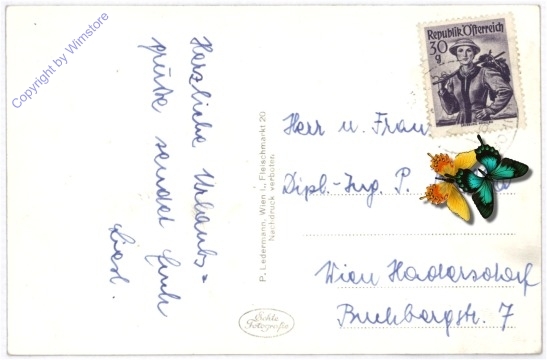 Copyright by Wimstore
Herzliche Urlaubs=
grüße sendet Euch
P. Ledermann, Wien I., Fleischmarkt 20
Nachdruck verboten.
Echte
Fotografie
Republik Österreich
30
g
Herr u. Frau
Dipl.-Ing. P.
Wien Hadersdorf
Buchbergstr. 7